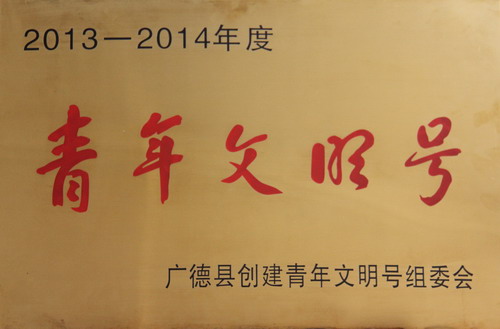 2013—2014年度
青年文明号
广德县创建青年文明号组委会